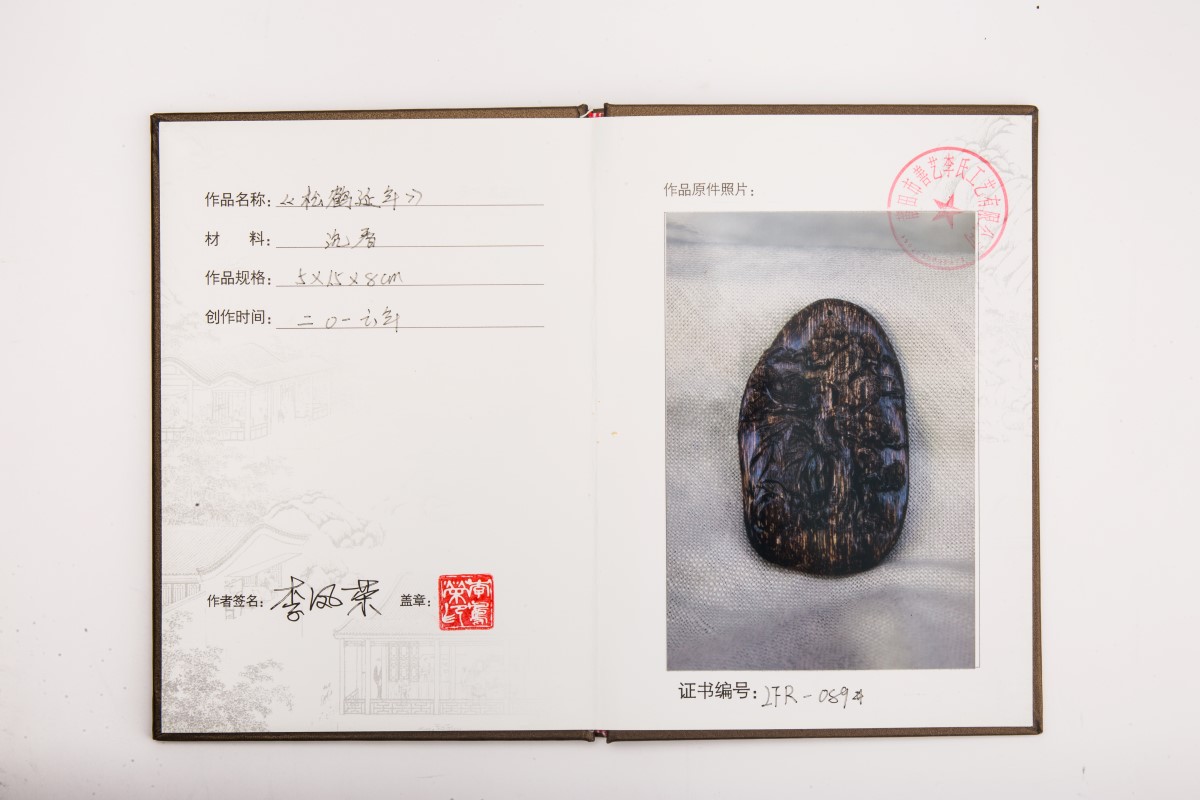 作品名称:《松鹤延年》
材 料: 沉香
作品规格: 5×15×8cm
创作时间: 二0一六年
作者签名: 李凤荣 盖章: 李鳳榮印
作品原件照片:
莆田市善艺李氏工艺有限公司
证书编号: LFR-089